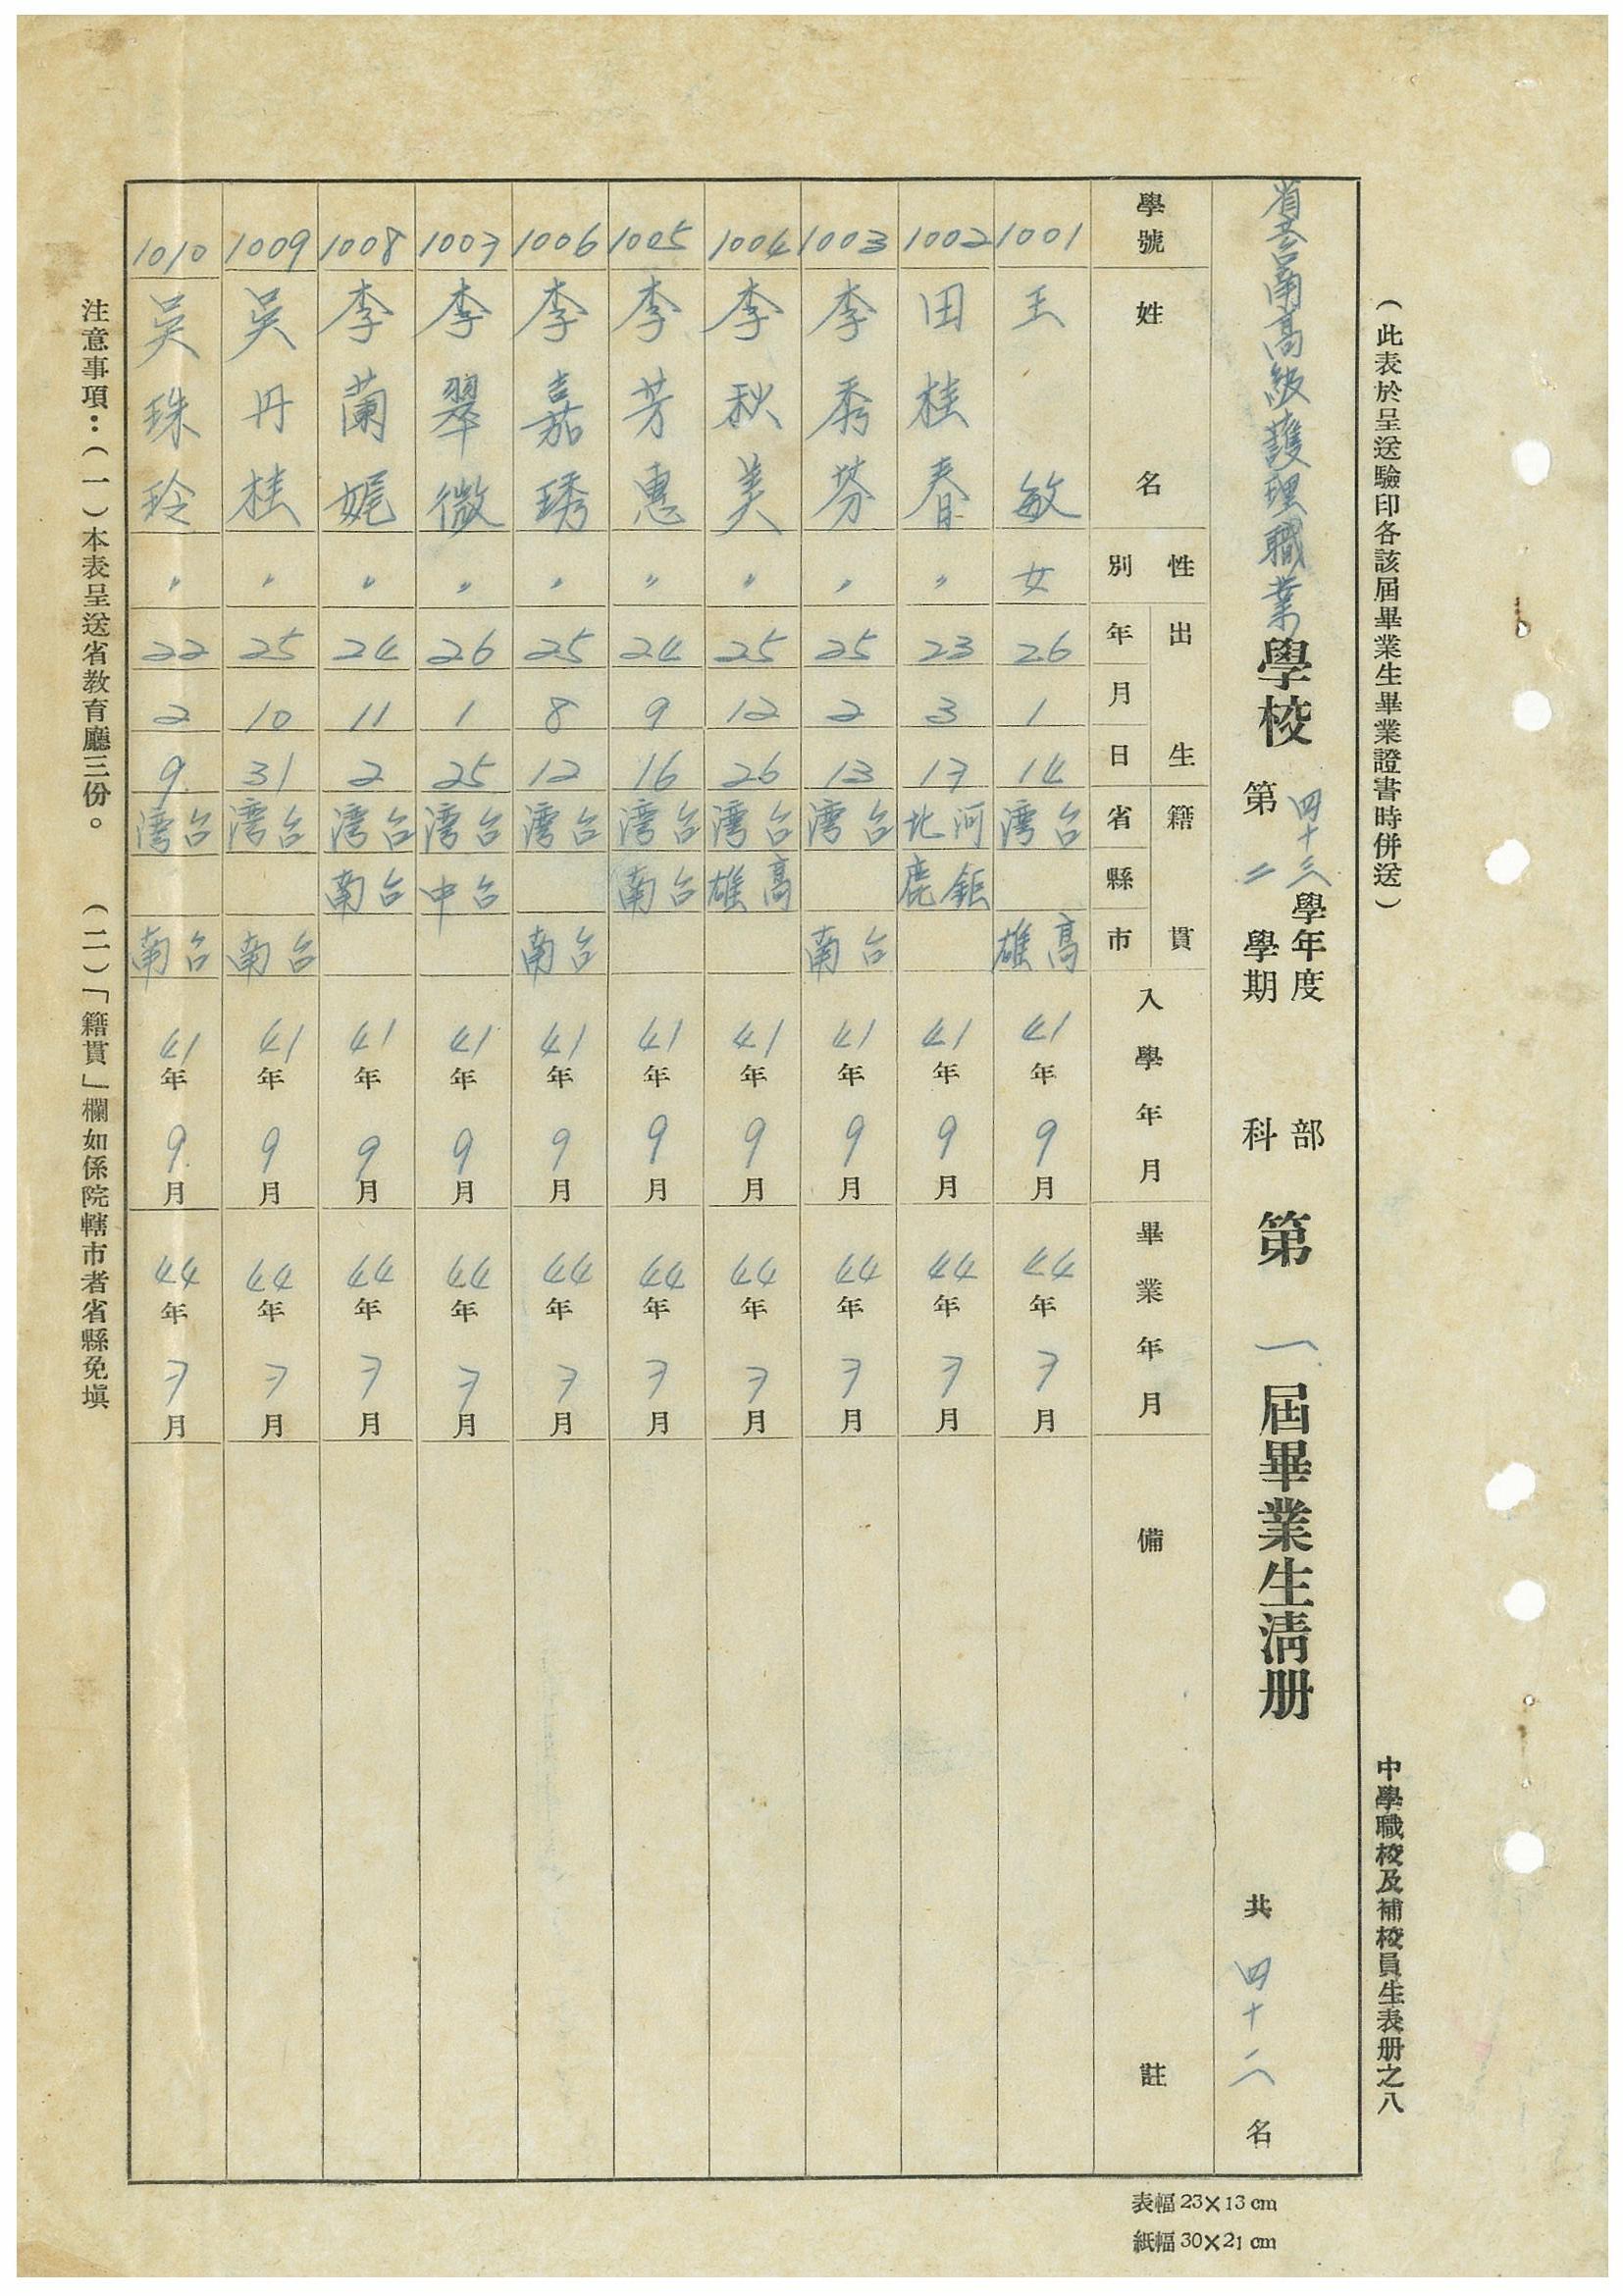 (此表於呈送驗印各該屆畢業生畢業證書時併送)
中學職校及補校員生表册之八
省立台南高級護理職業學校
四十三學年度
第二學期
部
科
第一屆畢業生清册
共四十二名
學號 姓名 性別 出生年月日 籍貫省縣市 入學年月 畢業年月 備註
1001 王敏 女 26 1 14 台灣 高雄 41年9月 44年7月
1002 田桂春 〃 23 3 17 河北 鉅鹿 41年9月 44年7月
1003 李秀芬 〃 25 2 13 台灣 台南 41年9月 44年7月
1004 李秋美 〃 25 12 26 台灣 高雄 41年9月 44年7月
1005 李芳惠 〃 24 9 16 台灣 台南 41年9月 44年7月
1006 李嘉琇 〃 25 8 12 台灣 台南 41年9月 44年7月
1007 李翠微 〃 26 1 25 台灣 台中 41年9月 44年7月
1008 李蘭娓 〃 24 11 2 台灣 台南 41年9月 44年7月
1009 吳丹桂 〃 25 10 31 台灣 台南 41年9月 44年7月
1010 吳珠玲 〃 22 2 9 台灣 台南 41年9月 44年7月
注意事項：(一)本表呈送省教育廳三份。 (二)「籍貫」欄如係院轄市者省縣免塡
表幅23×13cm
紙幅30×21cm